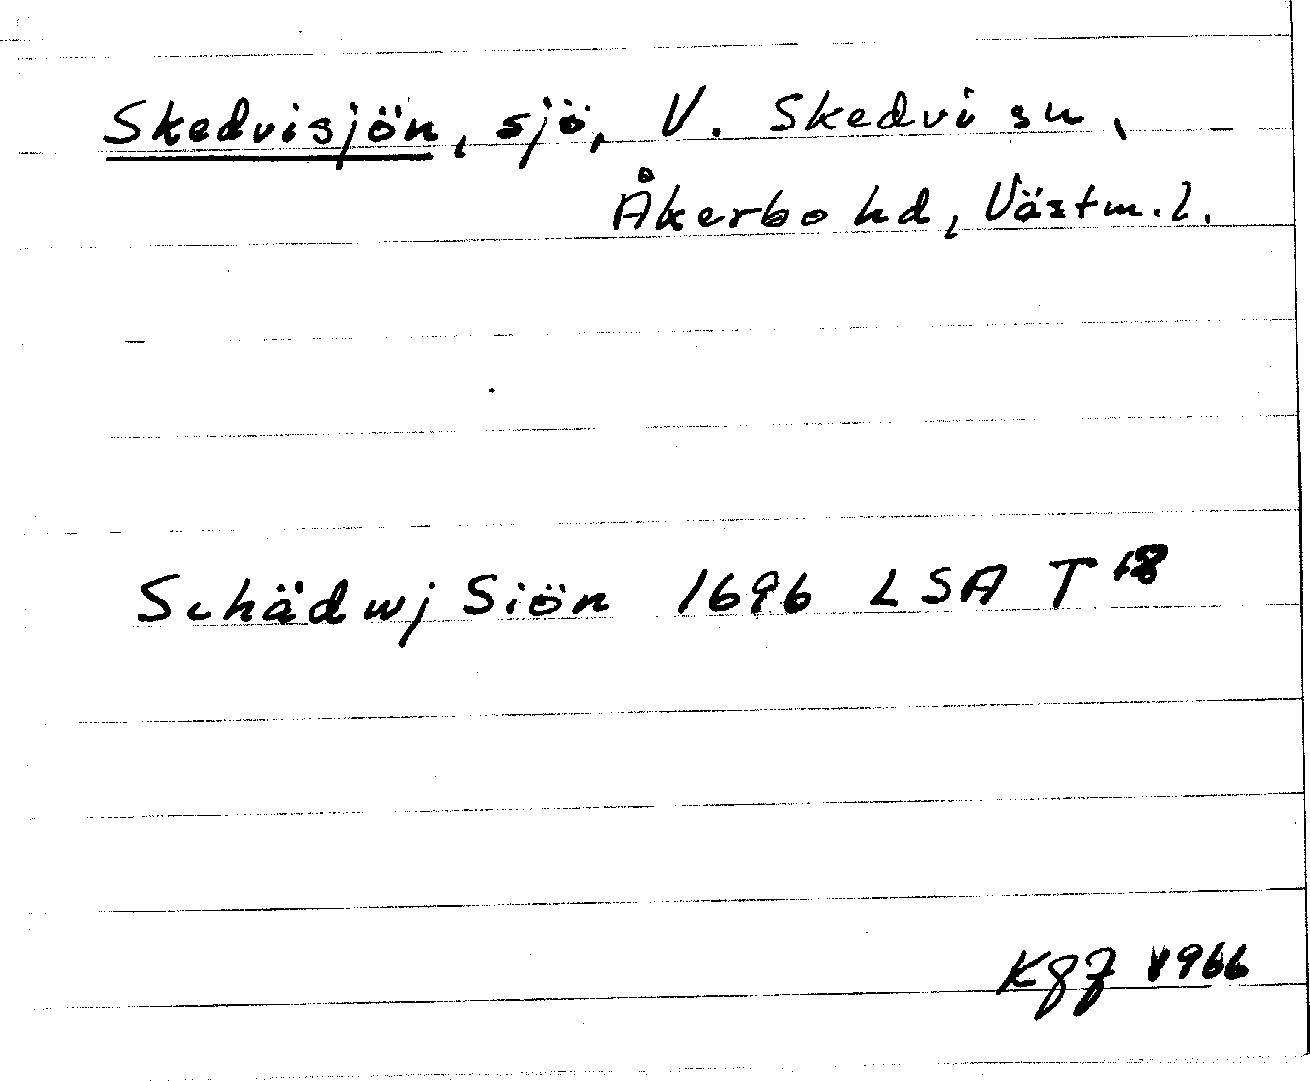 Skedvisjön, sjö, V. Skedvi sn,
Åkerbo hd, Västm.l.
Schädwj Siön 1696 LSA T 18
1966